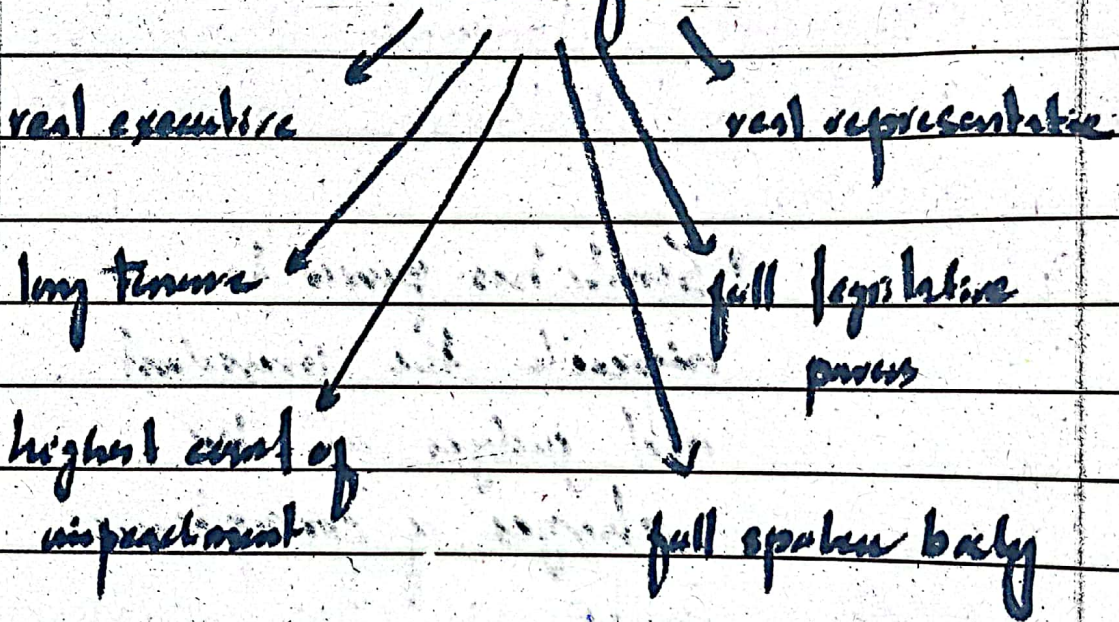 real executive
real representative
long tenure
full legislative
powers
highest court of
impeachment
full spoken body